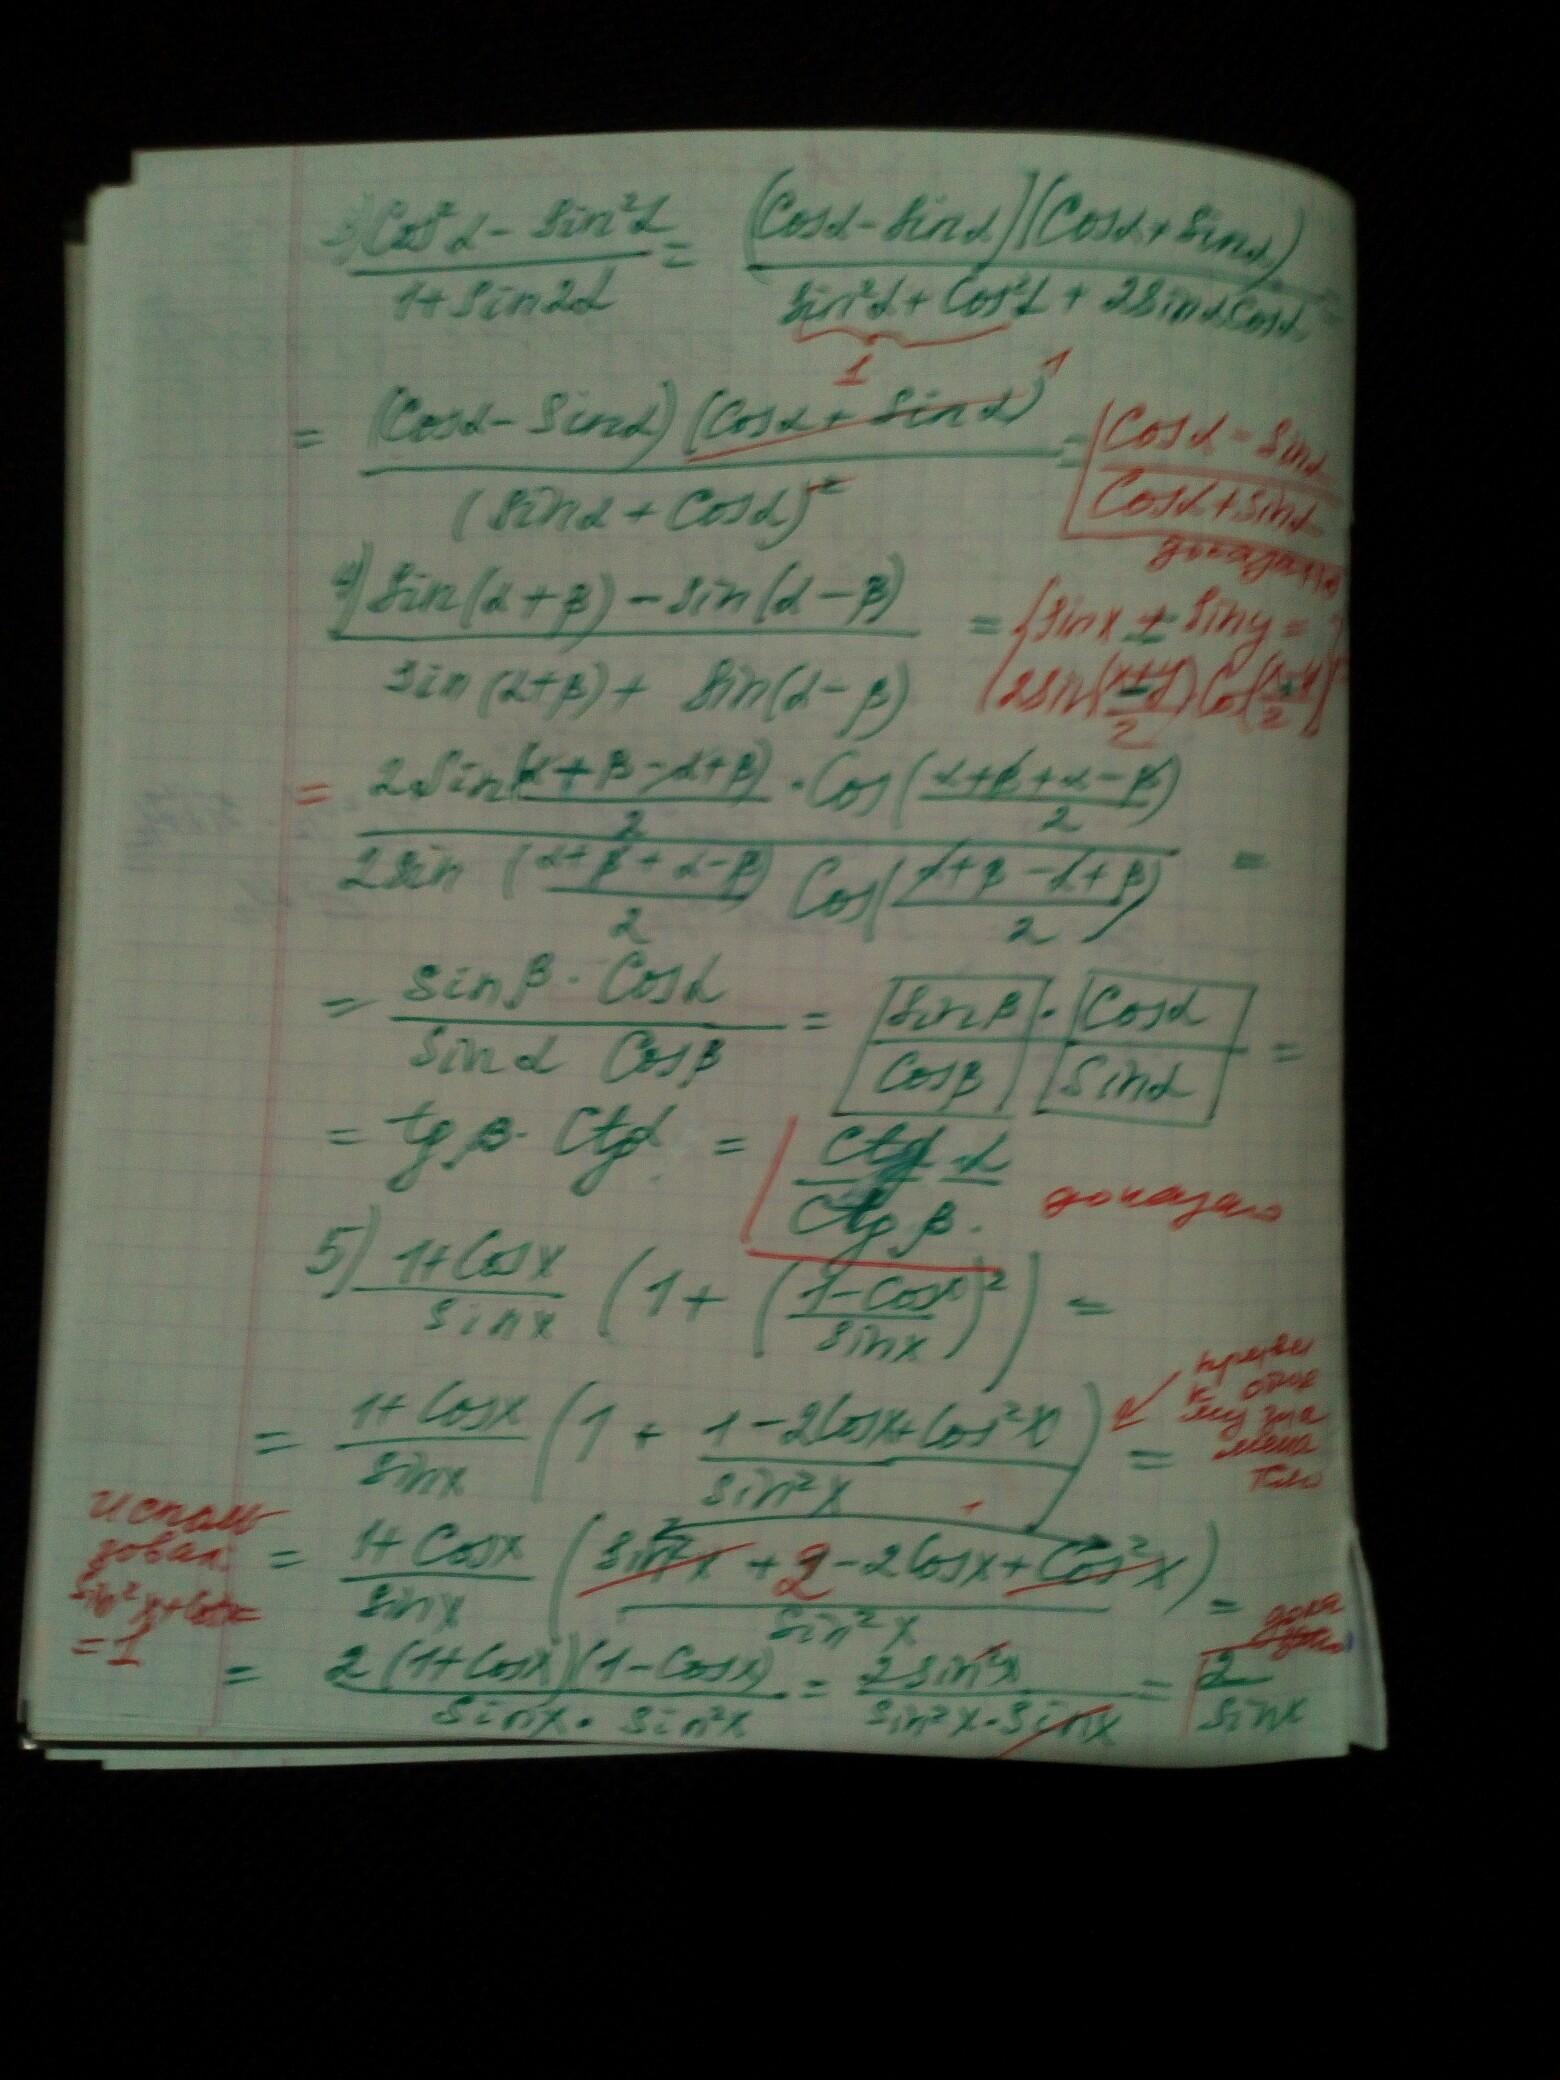 3) (Cos²α - Sin²α)/(1 + Sin2α) = ((Cosα - Sinα)(Cosα + Sinα))/(Sin²α + Cos²α + 2SinαCosα) =
1
= ((Cosα - Sinα)(Cosα + Sinα)¹)/(Sinα + Cosα)² = (Cosα - Sinα)/(Cosα + Sinα)
доказано
4) (Sin(α+β) - Sin(α-β))/(Sin(α+β) + Sin(α-β)) = {Sinx ± Siny =
2Sin((x±y)/2) Cos((x∓y)/2)}
= (2Sin((α+β-α+β)/2) · Cos((α+β+α-β)/2))/(2Sin((α+β+α-β)/2) Cos((α+β-α+β)/2)) =
= (Sinβ · Cosα)/(Sinα Cosβ) = Sinβ/Cosβ · Cosα/Sinα =
= tgβ · Ctgα = Ctgα/Ctgβ. доказано
5) (1+Cosx)/Sinx (1 + ((1-Cosx)/Sinx)²) =
= (1+Cosx)/Sinx (1 + (1-2Cosx+Cos²x)/Sin²x) =
к
мена
= (1+Cosx)/Sinx ((Sin²x + 2 - 2Cosx + Cos²x)/Sin²x) =
исполь
зовал:
Sin²x+Cos²x
= 1
= (2(1+Cosx)(1-Cosx))/(Sinx · Sin²x) = 2Sin²x/(Sin²x · Sinx) = 2/Sinx
дока
зано